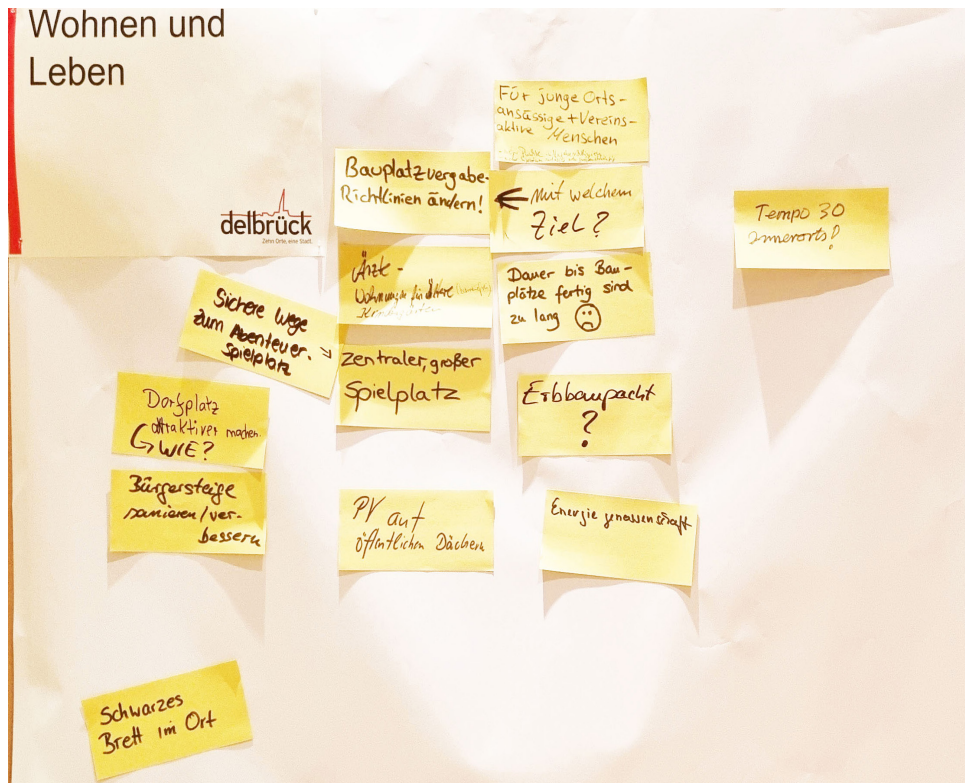 Wohnen und
Leben
delbrück
Zehn Orte, eine Stadt.
Für junge Orts-
ansässige + Vereins-
aktive Menschen
Bauplatzvergabe-
Richtlinien ändern!
← Mit welchem
Ziel?
Tempo 30
innerorts!
Ärzte -
Wohnungen für Ältere
Dauer bis Bau-
plätze fertig sind
zu lang ☹
Sichere Wege
zum Abenteuer-
spielplatz
→
zentraler, großer
Spielplatz
Erbbaupacht
?
Dorfplatz
attraktiver machen.
↳ WIE?
Bürgersteige
sanieren/ver-
bessern
PV auf
öffentlichen Dächern
Energiegenossenschaft
Schwarzes
Brett im Ort